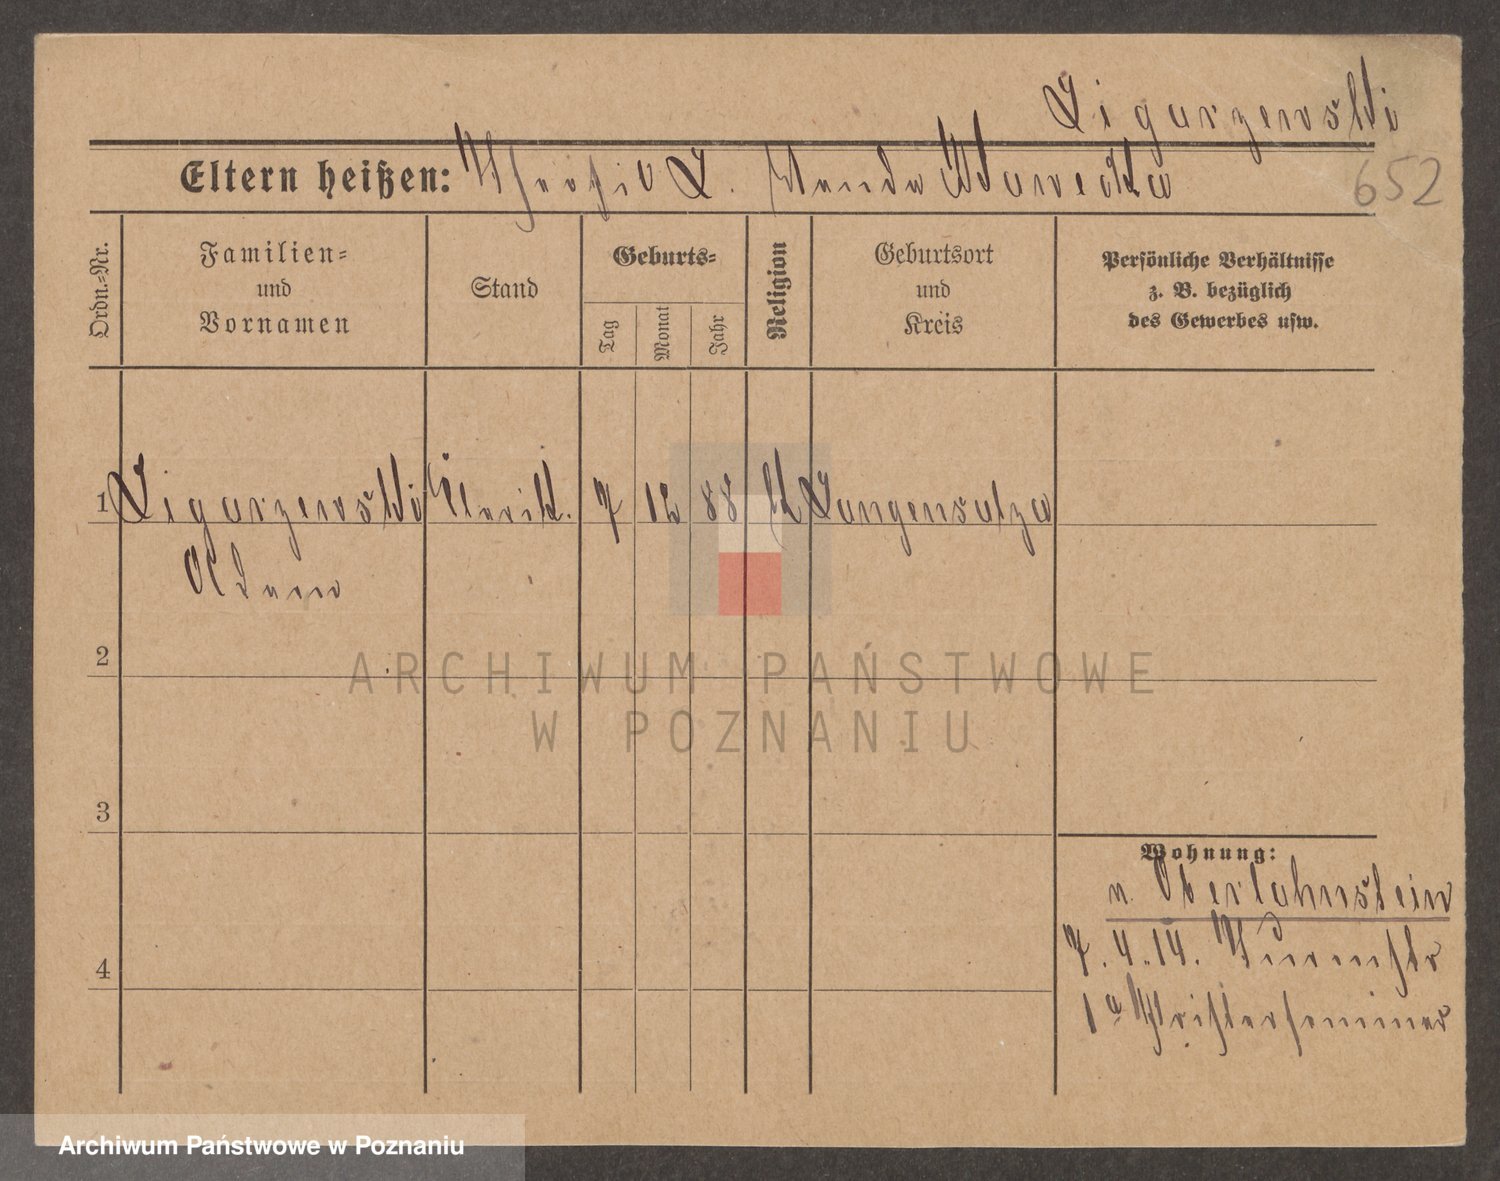 Ligarzewski
652
Eltern heißen: L. Wanda Wawecka
Ordn.-Nr.
Familien-
und
Vornamen
Stand
Geburts-
Tag
Monat
Jahr
Religion
Geburtsort
und
Kreis
Persönliche Verhältnisse
z. B. bezüglich
des Gewerbes usw.
1 Ligarzewski Clerik. 7 12 88 K Langensalza
Adam
2
3
4
Wohnung:
n. Oberlahnstein
7.4.14. Turmstr
1a Priesterseminar
ARCHIWUM PAŃSTWOWE
W POZNANIU
Archiwum Państwowe w Poznaniu